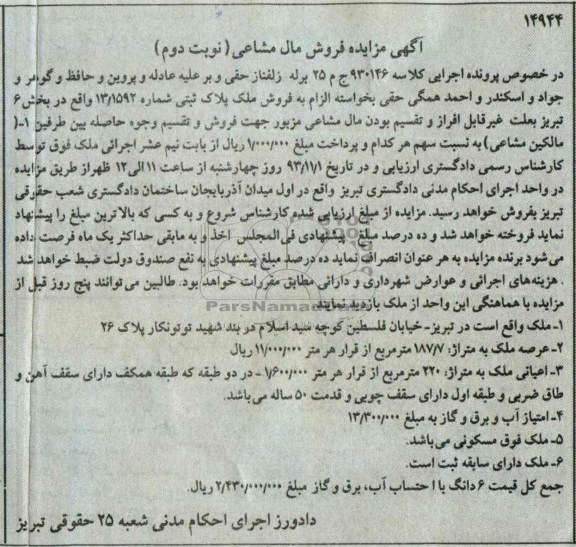 ۱۴۹۴۴
آگهی مزایده فروش مال مشاعی (نوبت دوم)
در خصوص پرونده اجرایی کلاسه ۹۳۰۱۴۶ج م ۲۵ برله زلفناز حقی و بر علیه عادله و پروین و حافظ و گوهر و
جواد و اسکندر و احمد همگی حقی بخواسته الزام به فروش ملک پلاک ثبتی شماره ۱۳/۱۵۹۲ واقع در بخش ۶
تبریز بعلت غیرقابل افراز و تقسیم بودن مال مشاعی مزبور جهت فروش و تقسیم وجوه حاصله بین طرفین ۱-(
مالکین مشاعی) به نسبت سهم هر کدام و پرداخت مبلغ ۱/۰۰۰/۰۰۰ ریال از بابت نیم عشر اجرائی ملک فوق توسط
کارشناس رسمی دادگستری ارزیابی و در تاریخ ۹۳/۱۱/۱ روز چهارشنبه از ساعت ۱۱ الی ۱۲ ظهر از طریق مزایده
در واحد اجرای احکام مدنی دادگستری تبریز واقع در اول میدان آذربایجان ساختمان دادگستری شعب حقوقی
تبریز بفروش خواهد رسید. مزایده از مبلغ ارزیابی شده کارشناس شروع و به کسی که بالاترین مبلغ را پیشنهاد
نماید فروخته خواهد شد و ده درصد مبلغ پیشنهادی فی المجلس اخذ و به مابقی حداکثر یک ماه فرصت داده
می شود برنده مزایده به هر عنوان انصراف نماید ده درصد مبلغ پیشنهادی به نفع صندوق دولت ضبط خواهد شد
. هزینه های اجرائی و عوارض شهرداری و دارائی مطابق مقررات خواهد بود. طالبین می توانند پنج روز قبل از
مزایده با هماهنگی این واحد از ملک بازدید نمایند
ParsNamadData
۱- ملک واقع است در تبریز- خیابان فلسطین کوچه سید اسلام در بند شهید توتونکار پلاک ۲۶
۲- عرصه ملک به متراژ: ۱۸۷/۷ مترمربع از قرار هر متر ۱۱/۰۰۰/۰۰۰ ریال
۳- اعیانی ملک به متراژ: ۲۲۰ مترمربع از قرار هر متر ۱/۶۰۰/۰۰۰- در دو طبقه که طبقه همکف دارای سقف آهن و
طاق ضربی و طبقه اول دارای سقف چوبی و قدمت ۵۰ ساله می باشد.
۴- امتیاز آب و برق و گاز به مبلغ ۱۳/۳۰۰/۰۰۰
۵- ملک فوق مسکونی می باشد.
۶- ملک دارای سابقه ثبت است.
جمع کل قیمت ۶ دانگ با احتساب آب، برق و گاز مبلغ ۲/۴۳۰/۰۰۰/۰۰۰ ریال.
دادورز اجرای احکام مدنی شعبه ۲۵ حقوقی تبریز